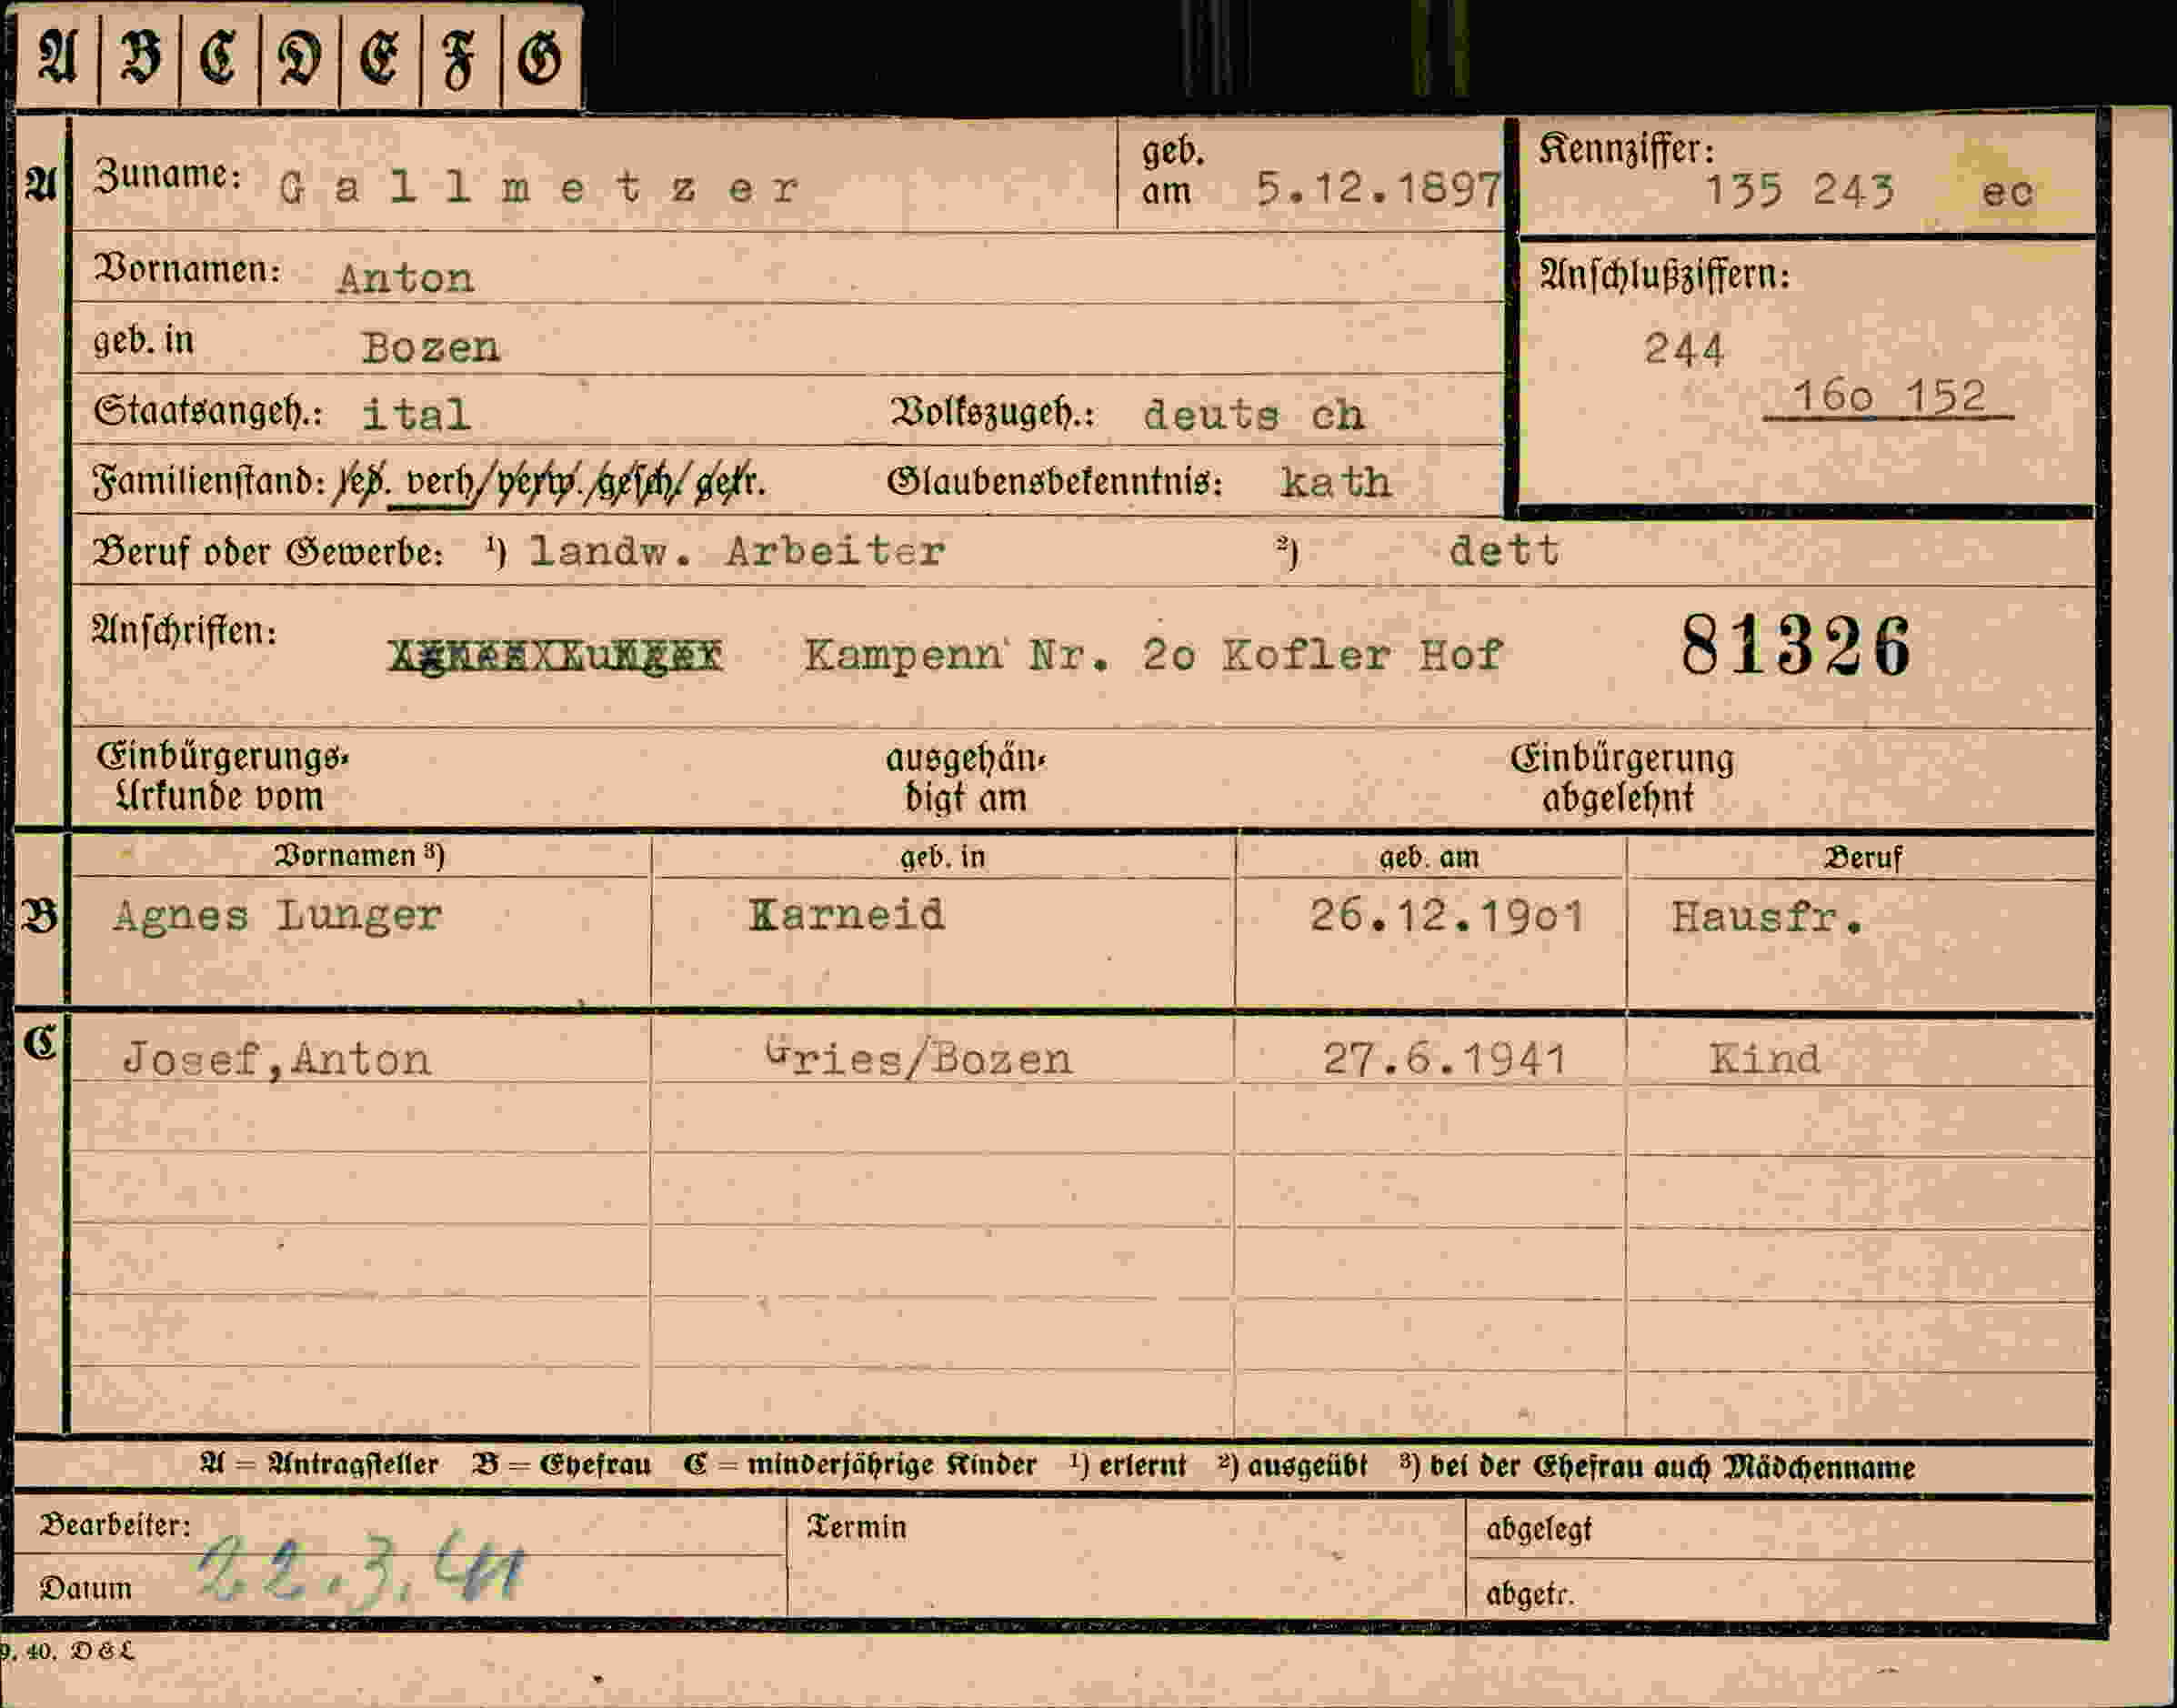 A B C D E F G
A Zuname: Gallmetzer geb. am 5.12.1897 Kennziffer: 135 243 ec
Vornamen: Anton
Anschlußziffern:
geb. in Bozen
244
160 152
Staatsangeh.: ital Volkszugeh.: deuts ch
Familienstand: led. verh/verw./gesch/getr. Glaubensbekenntnis: kath
Beruf oder Gewerbe: ¹) landw. Arbeiter ²) dett
Anschriften: Kampenn Nr. 2o Kofler Hof 81326
Einbürgerungs- ausgehän- Einbürgerung
Urkunde vom digt am abgelehnt
Vornamen ³) geb. in geb. am Beruf
B Agnes Lunger Karneid 26.12.19o1 Hausfr.
C Josef,Anton Gries/Bozen 27.6.1941 Kind
A = Antragsteller B = Ehefrau C = minderjährige Kinder ¹) erlernt ²) ausgeübt ³) bei der Ehefrau auch Mädchenname
Bearbeiter: Termin abgelegt
Datum 22.3.41 abgetr.
9. 40. D & L